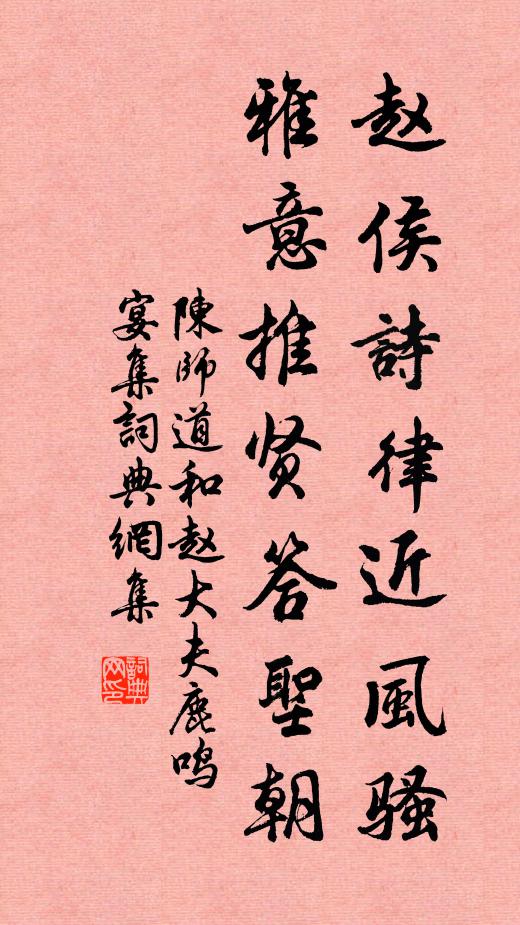 赵侯詩律近風骚
雅意推贤答聖朝
陳師道和赵大夫鹿鸣
宴集詞典網集
詞典网印